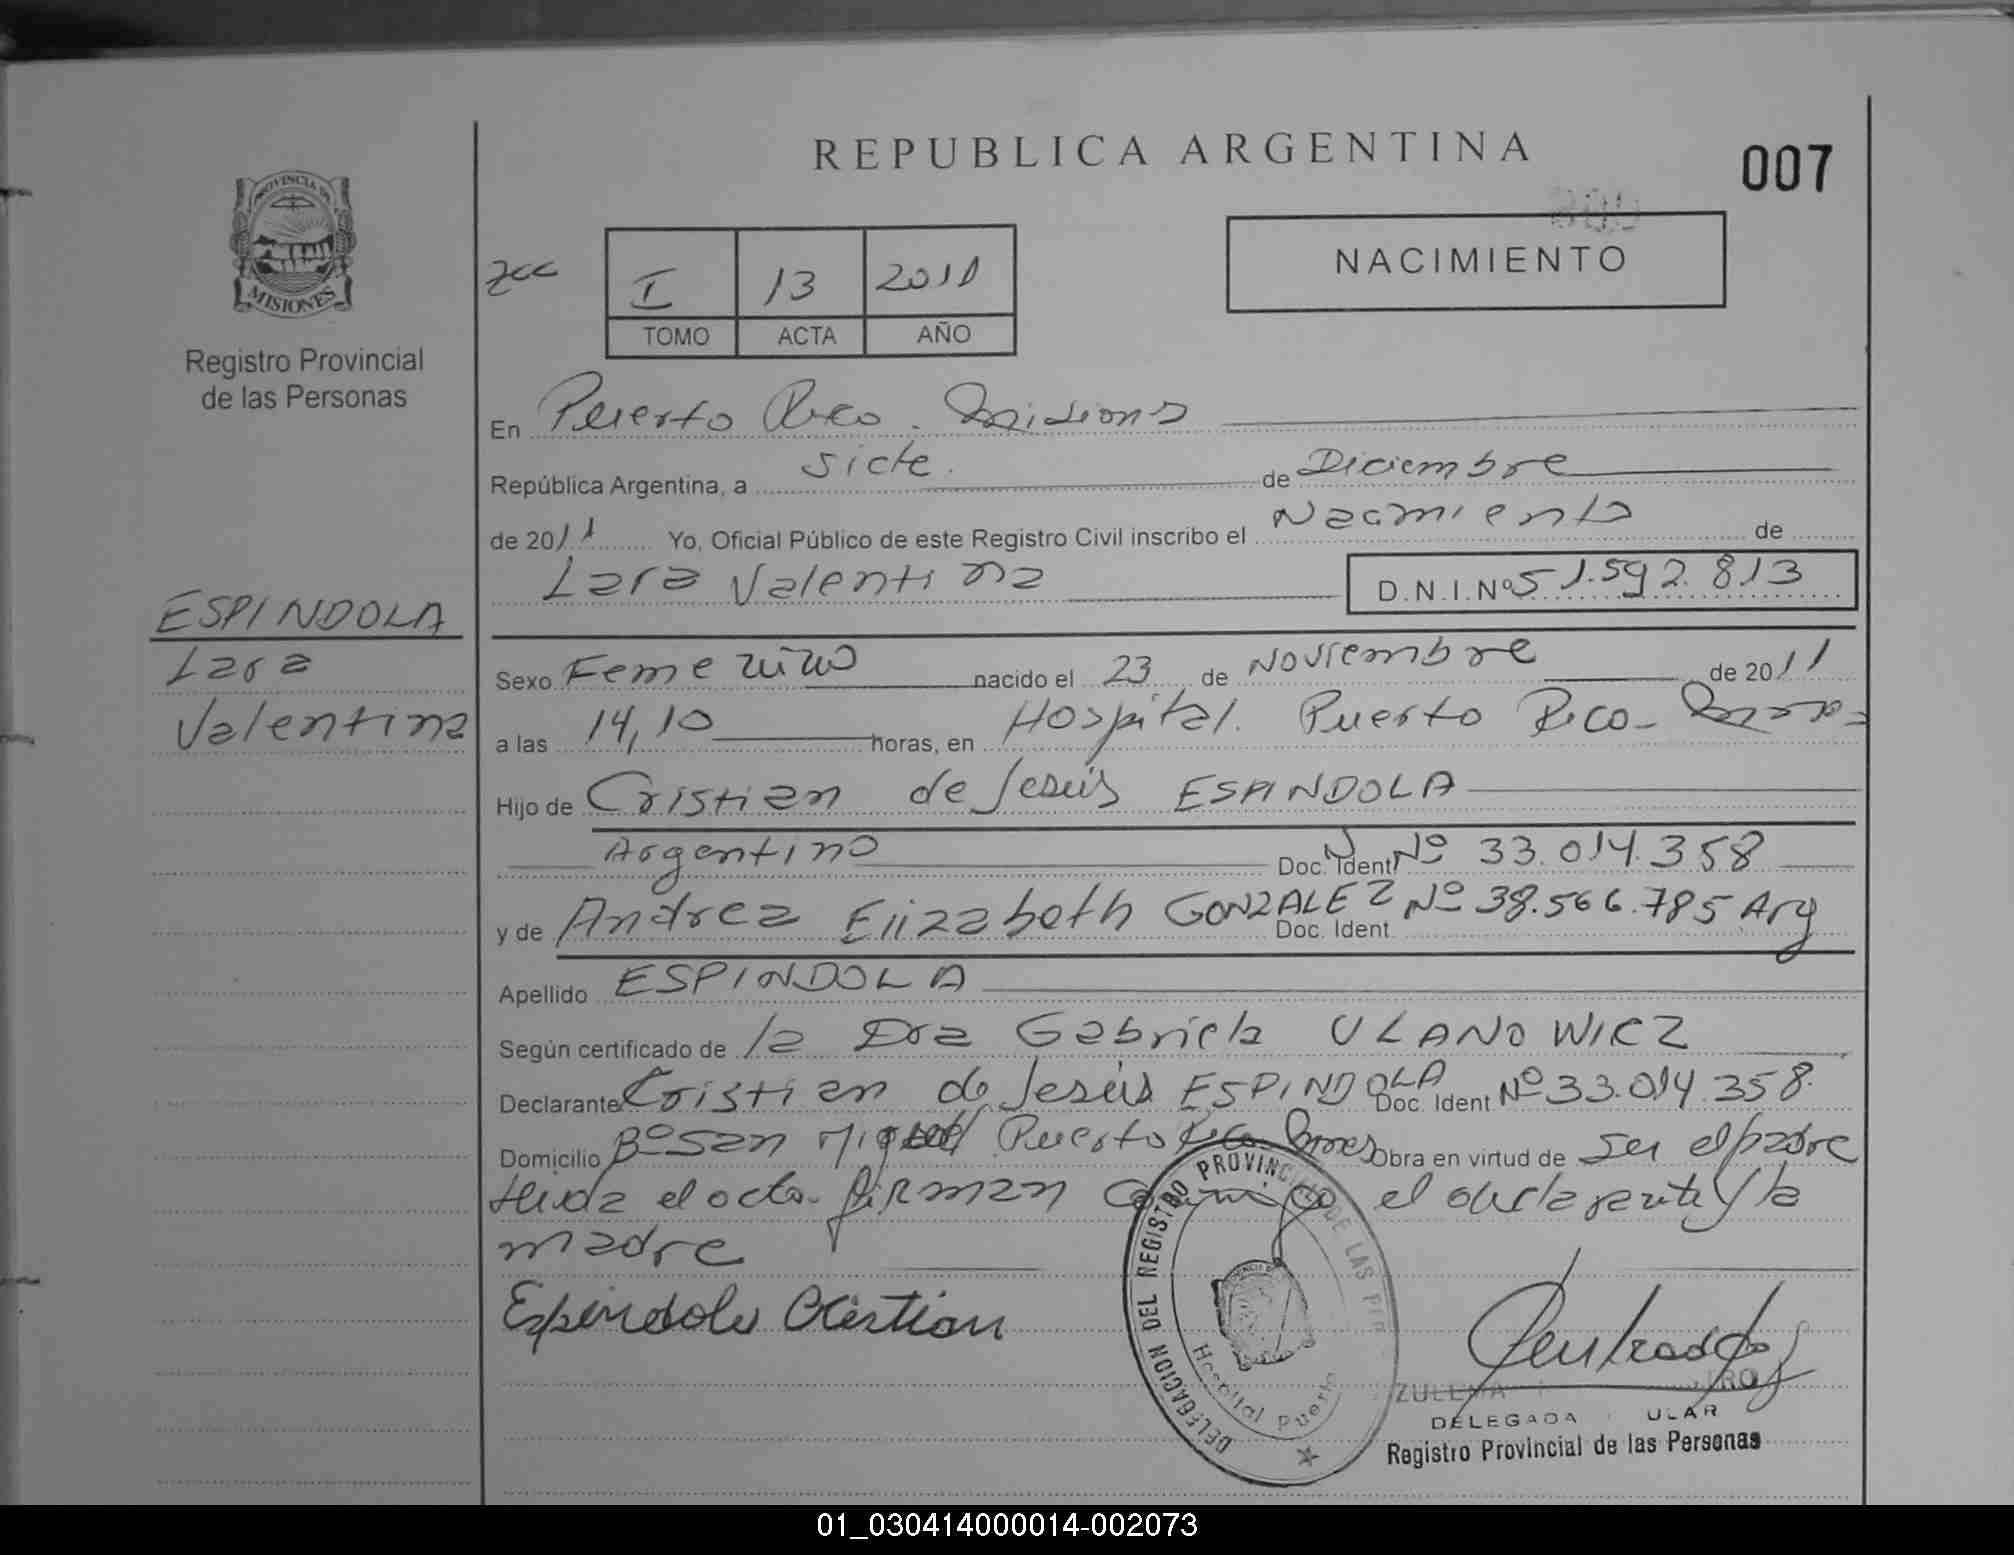 REPUBLICA ARGENTINA
007
PROVINCIA DE
MISIONES
Registro Provincial
de las Personas
I 13 2011
TOMO ACTA AÑO
NACIMIENTO
En Puerto Rico. Misiones
República Argentina, a siete. de Diciembre
de 2011 Yo, Oficial Público de este Registro Civil inscribo el Nacimiento de
Lara Valentina D.N.I.Nº 51.592.813
ESPINDOLA
Lara
Valentina
Sexo Femenino nacido el 23 de Noviembre de 2011
a las 14,10 horas, en Hospital. Puerto Rico-
Hijo de Cristian de Jesús ESPINDOLA
Argentino Doc. Ident Nº 33.014.358
y de Andrea Elizabeth GONZALEZ Doc. Ident. Nº 38.566.785 Arg
Apellido ESPINDOLA
Según certificado de la Dra Gabriela ULANOWICZ
Declarante Cristian de Jesús ESPINDOLA Doc. Ident Nº 33.014.358.
Domicilio Bº San Miguel Puerto Rico Mnes Obra en virtud de ser el padre
Leida el acta. firman conmigo el declarante y la
madre
Espindola Cristian
DELEGACION DEL REGISTRO PROVINCIAL DE LAS PER
Hospital Puerto
ZULEMA
DELEGADA ULAR
Registro Provincial de las Personas
01_030414000014-002073